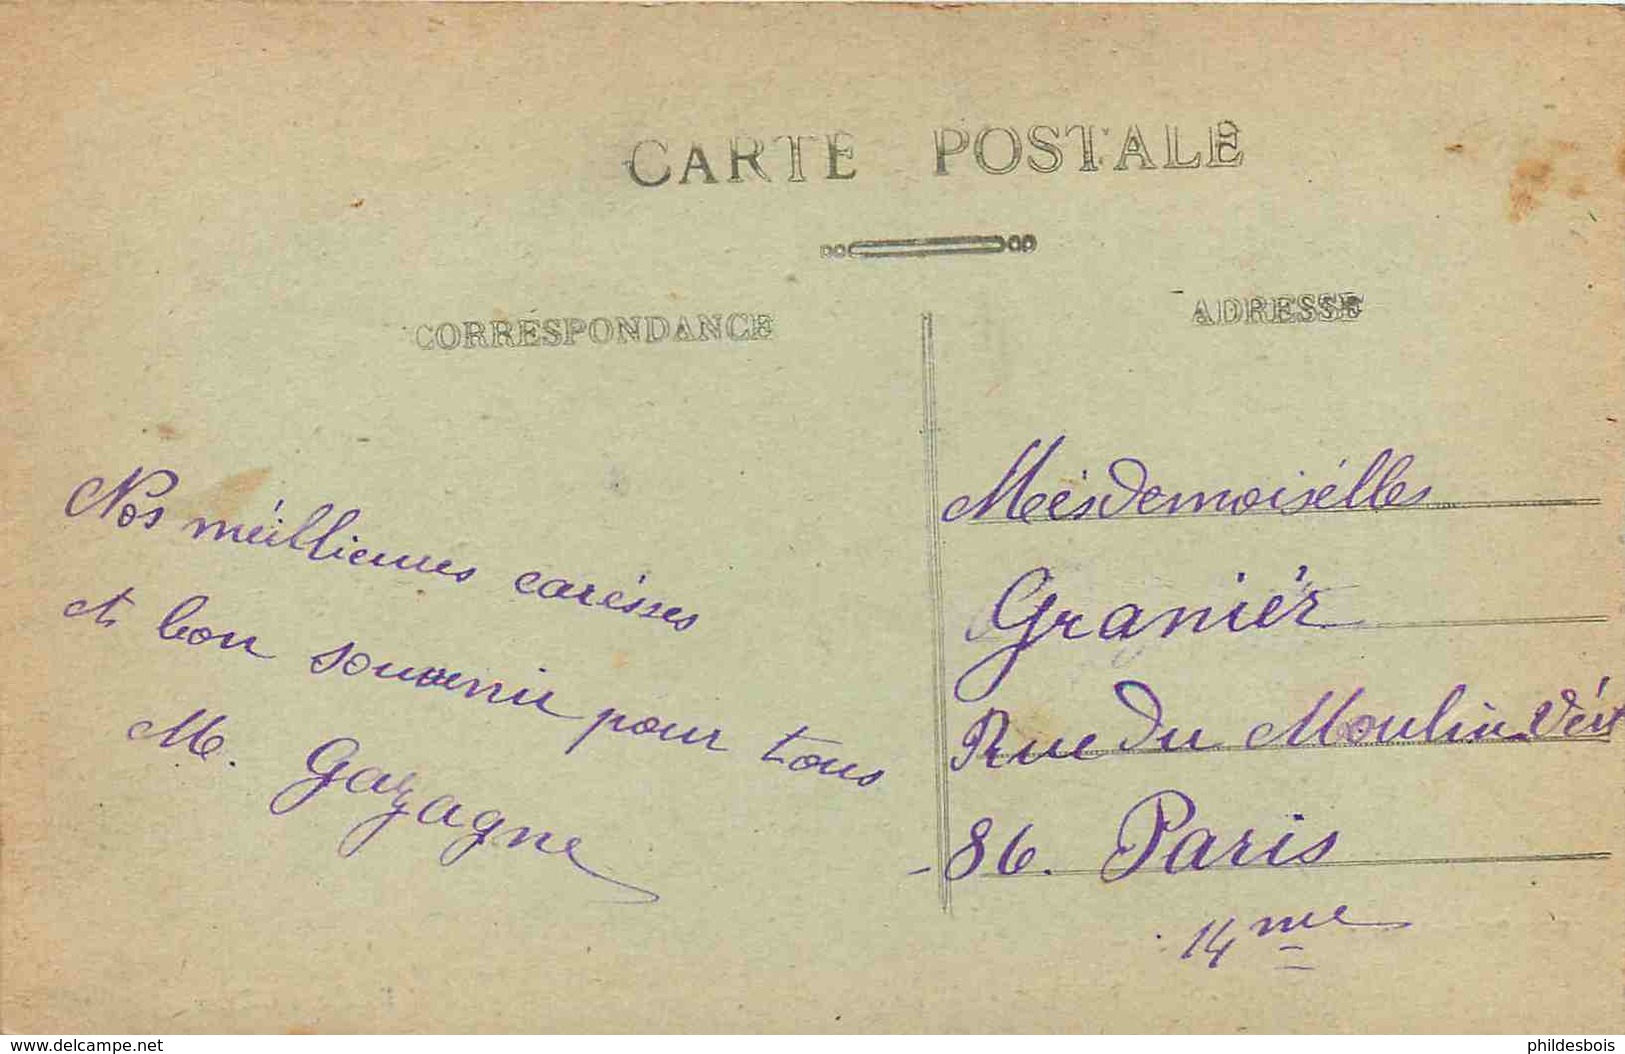 CARTE POSTALE
CORRESPONDANCE
ADRESSE
Nos méillieures carésses
et bon souvenir pour tous
M. Gazagne
Mésdemoisélles
Graniér
Rue du Moulin Vért
86. Paris
14me
www.delcampe.net
phildesbois